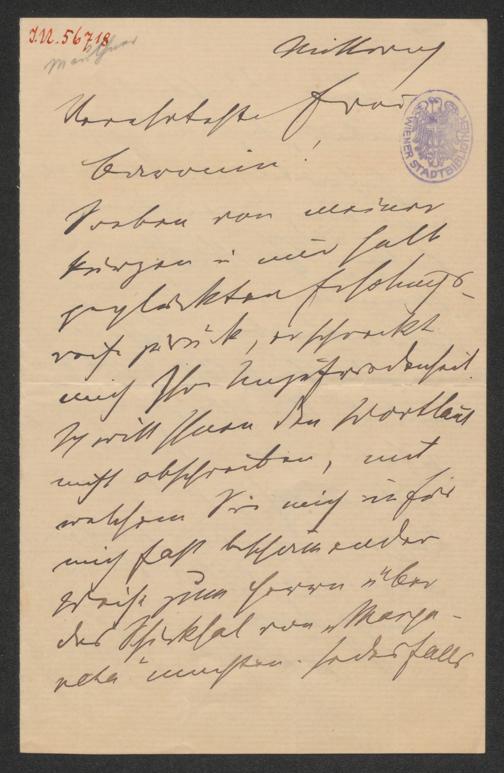 I.N. 56718
Mittwoch
Verehrteste Frau
Baronin!
Soeben von meiner
kurzen u nur halb
geglückten Erholungs-
reise zurück, erschreckt
mich Ihre Unzufriedenheit.
Ich will Ihnen den Wortlaut
nicht abschreiben, mit
welchem Sie mich in für
mich fast beschämender
Weise zum Herrn über
das Schicksal von „Marga-
reta" machten. Jedesfalls
WIENER STADTBIBLIOTHEK